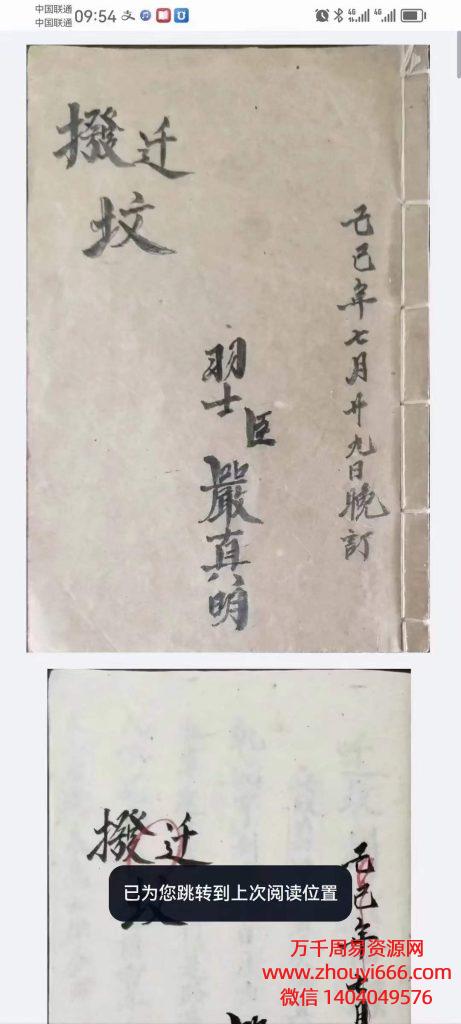 中国联通
中国联通
09:54
4G
4G
撥迁
坟
己巳年七月廿九日晚訂
羽士臣
嚴真明
撥迁
坟
己巳年七月
已为您跳转到上次阅读位置
万千周易资源网
www.zhouyi666.com
微信 1404049576